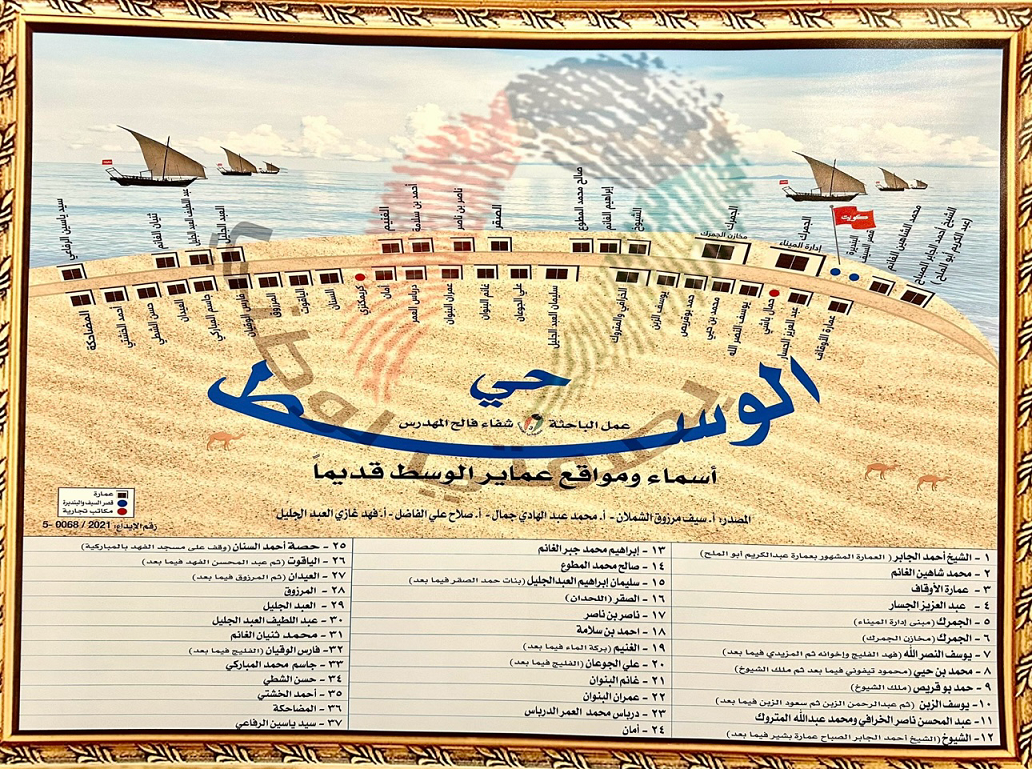 سيد ياسين الرفاعي
ثنيان الغانم
عبد اللطيف العبد الجليل
العبد الجليل
الغنيم
أحمد بن سلامة
ناصر بن ناصر
الصقر
صالح محمد المطوع
إبراهيم الغانم
الشيوخ
الجمرك
مخازن الجمرك
الجمرك
إدارة الميناء
كويت
قصر السيف
البنديرة
محمد الشاهين الغانم
الشيخ أحمد الجابر الصباح
(عبد الكريم أبو الملح)
المضاحكة
أحمد الخشتي
حسن الشطي
العيدان
جاسم المباركي
فارس الوقيان
المرزوق
الياقوت
السنان
كريمكنزي
أمان
درياس العمر
عمران البنوان
غانم البنوان
علي الجوعان
سليمان العبد الجليل
الخرافي والمتروك
يوسف الزبن
حمد بوقريص
محمد بن حيي
يوسف النصر الله
حمال باشي
عبد العزيز الجسار
عمارة الأوقاف
حي
الوسط
عمل الباحثة شفاء فالح المهدرس
أسماء ومواقع عماير الوسط قديماً
المصدر: أ. سيف مرزوق الشملان - أ. محمد عبد الهادي جمال - أ. صلاح علي الفاضل - أ. فهد غازي العبد الجليل
عمارة
قصر السيف والبنديرة
مكاتب تجارية
رقم الإيداع: 2021 / 0068 -5
١ - الشيخ أحمد الجابر ( العمارة المشهور بعمارة عبدالكريم أبو الملح)
٢ - محمد شاهين الغانم
٣ - عمارة الأوقاف
٤ - عبد العزيز الجسار
٥ - الجمرك (مبنى إدارة الميناء)
٦ - الجمرك (مخازن الجمرك)
٧ - يوسف النصر الله (فهد الفليج وإخوانه ثم المزيدي فيما بعد)
٨ - محمد بن حيي (محمود تيفوني فيما بعد ثم ملك الشيوخ)
٩ - حمد بو قريص (ملك الشيوخ)
١٠- يوسف الزبن (ثم عبدالرحمن الزبن ثم سعود الزبن فيما بعد)
١١- عبد المحسن ناصر الخرافي ومحمد عبدالله المتروك
١٢- الشيوخ (الشيخ أحمد الجابر الصباح عمارة بشير فيما بعد)
١٣ - إبراهيم محمد جبر الغانم
١٤ - صالح محمد المطوع
١٥ - سليمان إبراهيم العبدالجليل (بنات حمد الصقر فيما بعد)
١٦ - الصقر (اللحدان)
١٧ - ناصر بن ناصر
١٨ - احمد بن سلامة
١٩ - الغنيم (بركة الماء فيما بعد)
٢٠ - علي الجوعان (الفليج فيما بعد)
٢١ - غانم البنوان
٢٢ - عمران البنوان
٢٣ - درياس محمد العمر الدرباس
٢٤ - أمان
٢٥ - حصة أحمد السنان (وقف على مسجد الفهد بالمباركية)
٢٦ - الياقوت (ثم عبد المحسن الفهد فيما بعد)
٢٧ - العيدان (ثم المرزوق فيما بعد)
٢٨ - المرزوق
٢٩ - العبد الجليل
٣٠ - عبد اللطيف العبد الجليل
٣١ - محمد ثنيان الغانم
٣٢- فارس الوقيان (الفليج فيما بعد)
٣٣ - جاسم محمد المباركي
٣٤ - حسن الشطي
٣٥ - أحمد الخشتي
٣٦ - المضاحكة
٣٧ - سيد ياسين الرفاعي